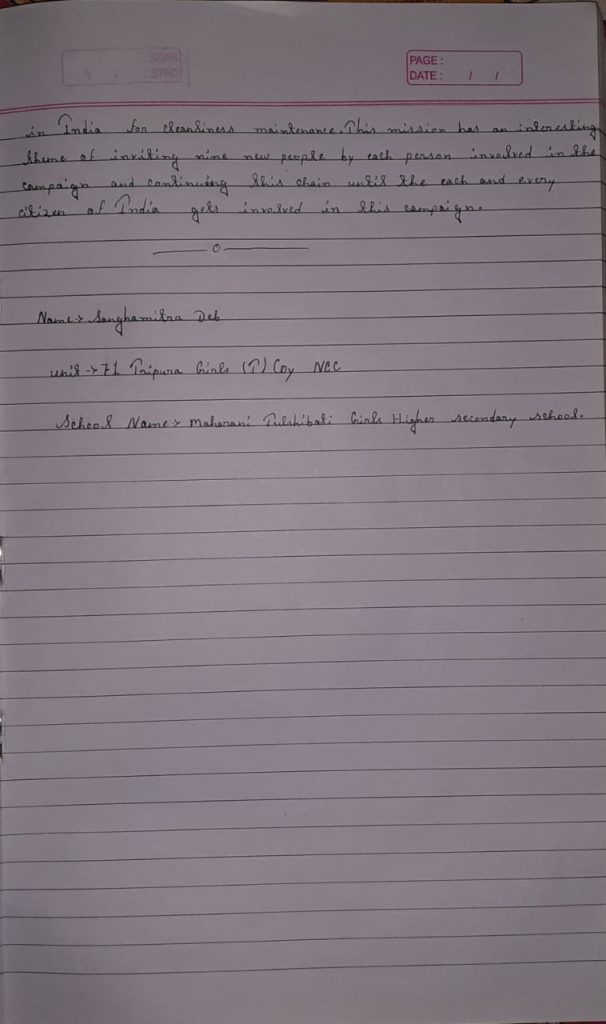 PAGE :
DATE : / /
in India for cleanliness maintenance. This mission has an interesting
theme of inviting nine new people by each person involved in the
campaign and continuing this chain until the each and every
citizen of India gets involved in this campaign.
Name → Sanghamitra Deb
unit → 71 Tripura Girls (T) Coy NCC
School Name → Maharani Tulshibati Girls Higher secondary school.